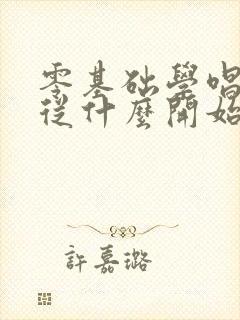 零基础學唱
從什麼開始
許嘉璐